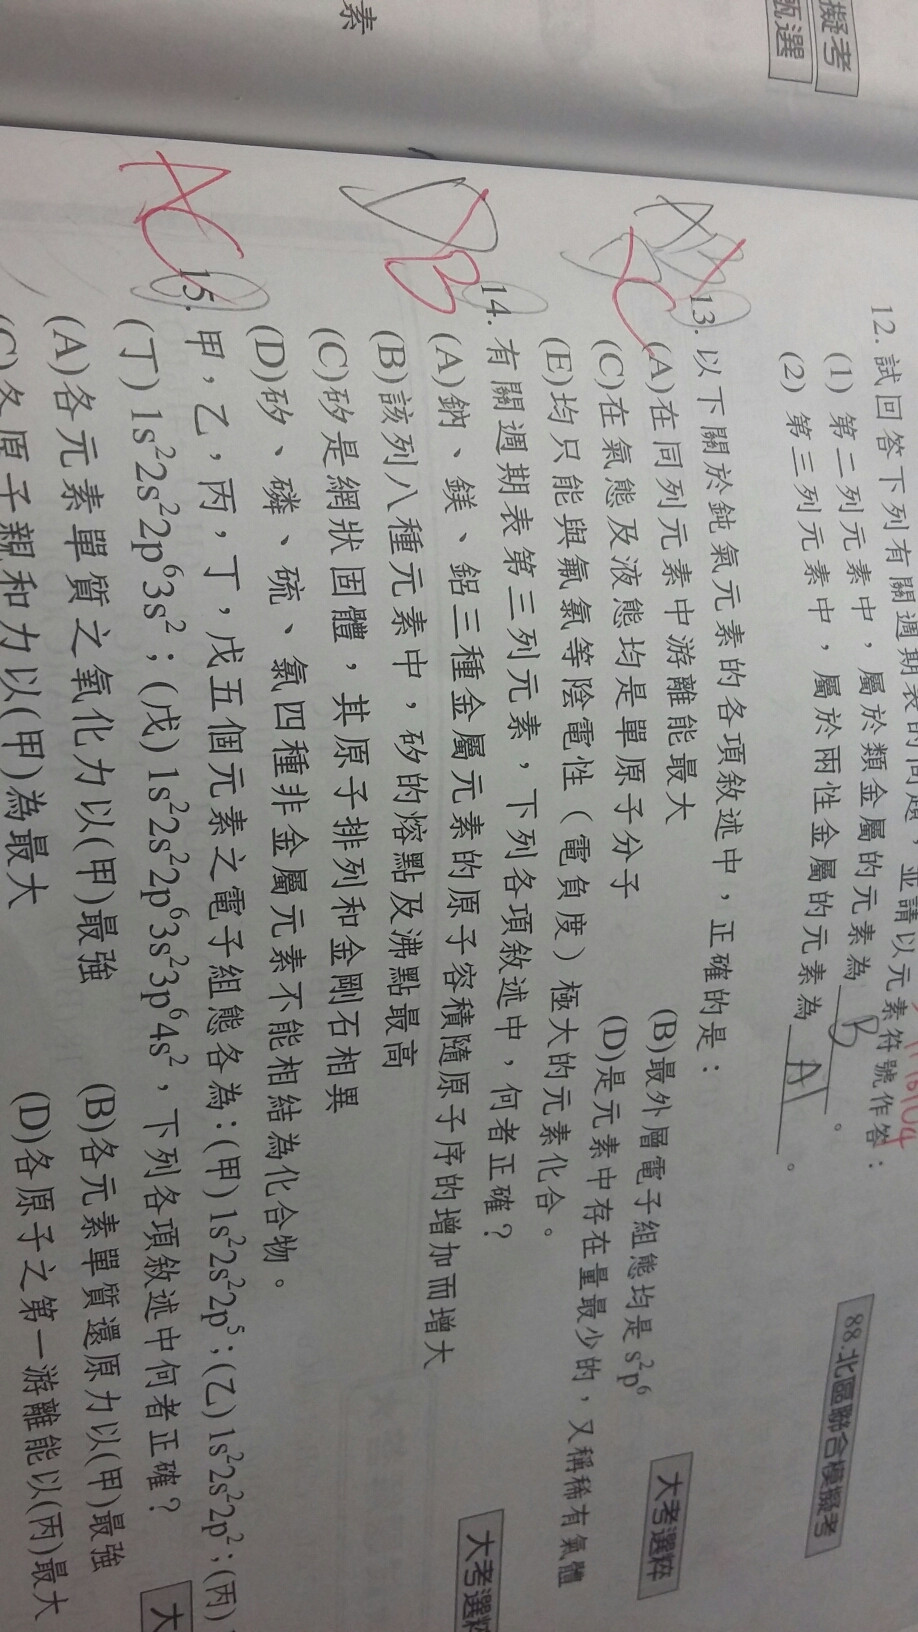 擬考
甄選
素
12. 試回答下列有關週期表的問題，並請以元素符號作答：
(1) 第二列元素中，屬於類金屬的元素為 B 。
(2) 第三列元素中，屬於兩性金屬的元素為 Al 。
88.北區聯合模擬考
AC
13. 以下關於鈍氣元素的各項敘述中，正確的是：
大考選粹
(A)在同列元素中游離能最大 (B)最外層電子組態均是 s²p⁶
(C)在氣態及液態均是單原子分子 (D)是元素中存在量最少的，又稱稀有氣體
(E)均只能與氟氯等陰電性（電負度）極大的元素化合。
B
14. 有關週期表第三列元素，下列各項敘述中，何者正確？
大考選粹
(A)鈉、鎂、鋁三種金屬元素的原子容積隨原子序的增加而增大
(B)該列八種元素中，矽的熔點及沸點最高
(C)矽是網狀固體，其原子排列和金剛石相異
(D)矽、磷、硫、氯四種非金屬元素不能相結為化合物。
AC
15. 甲，乙，丙，丁，戊五個元素之電子組態各為：(甲) 1s²2s²2p⁵；(乙) 1s²2s²2p²；(丙)
(丁) 1s²2s²2p⁶3s²；(戊) 1s²2s²2p⁶3s²3p⁶4s²，下列各項敘述中何者正確？
大
(A)各元素單質之氧化力以(甲)最強 (B)各元素單質還原力以(甲)最強
(C)各原子親和力以(甲)為最大 (D)各原子之第一游離能以(丙)最大